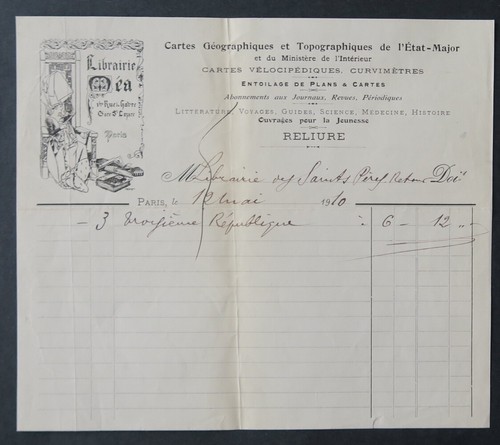 Librairie
Méa
Rue St Lazare
Paris
Cartes Géographiques et Topographiques de l'État-Major
et du Ministère de l'Intérieur
CARTES VÉLOCIPÉDIQUES, CURVIMÈTRES
ENTOILAGE DE PLANS & CARTES
Abonnements aux Journaux, Revues, Périodiques
LITTÉRATURE, VOYAGES, GUIDES, SCIENCE, MÉDECINE, HISTOIRE
OUVRAGES pour la Jeunesse
RELIURE
M Librairie des Saints Pères Doit
PARIS, le 12 mai 1910
- 3 Troisième République à 6 - 12 "